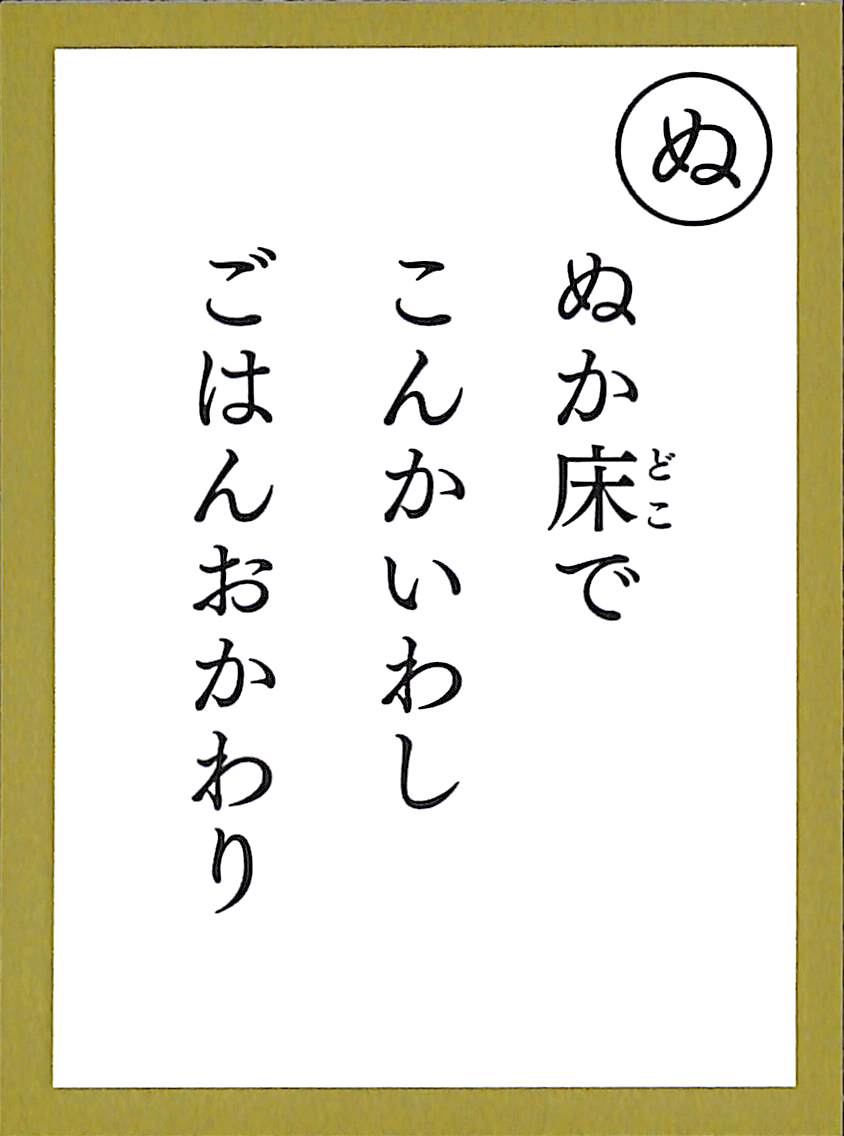 ぬ
ぬか床で
どこ
こんかいわし
ごはんおかわり